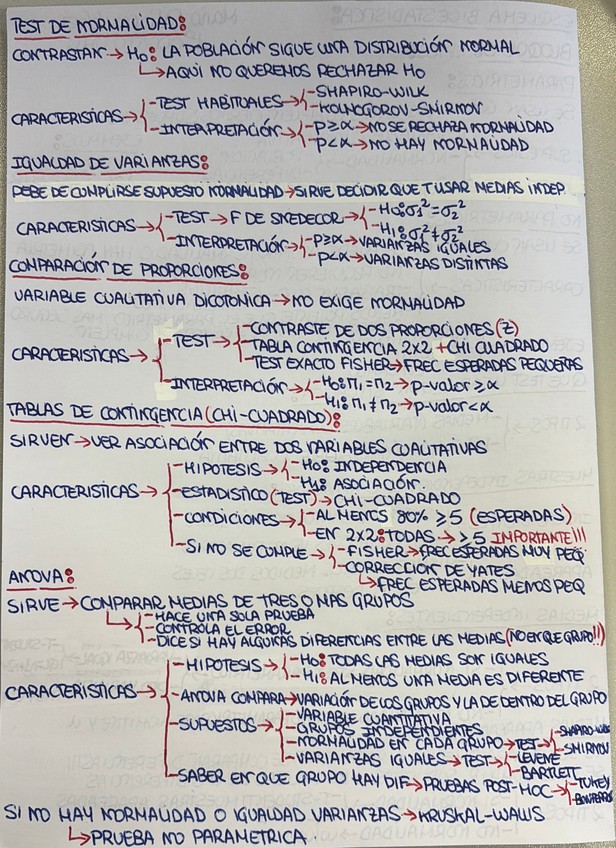 TEST DE NORMALIDAD:
CONTRASTAR → H₀: LA POBLACIÓN SIGUE UNA DISTRIBUCIÓN NORMAL
↳ AQUI NO QUEREMOS RECHAZAR H₀
CARACTERISTICAS →
- TEST HABITUALES →
- SHAPIRO-WILK
- KOLNOGOROV-SNIRNOV
- INTERPRETACIÓN →
- P ≥ α → NO SE RECHAZA NORMALIDAD
- P < α → NO HAY NORMALIDAD
IGUALDAD DE VARIANZAS:
DEBE DE CUMPLIRSE SUPUESTO NORMALIDAD → SIRVE DECIDIR QUE T USAR MEDIAS INDEP.
CARACTERISTICAS →
- TEST → F DE SNEDECOR →
- H₀: σ₁² = σ₂²
- H₁: σ₁² ≠ σ₂²
- INTERPRETACIÓN →
- P ≥ α → VARIANZAS IGUALES
- P < α → VARIANZAS DISTINTAS
COMPARACIÓN DE PROPORCIONES:
VARIABLE CUALITATIVA DICOTONICA → NO EXIGE NORMALIDAD
CARACTERISTICAS →
- TEST →
CONTRASTE DE DOS PROPORCIONES (Z)
TABLA CONTINGENCIA 2X2 + CHI CUADRADO
TEST EXACTO FISHER → FREC ESPERADAS PEQUEÑAS
- INTERPRETACIÓN →
- H₀: π₁ = π₂ → p-valor ≥ α
- H₁: π₁ ≠ π₂ → p-valor < α
TABLAS DE CONTINGENCIA (CHI-CUADRADO):
SIRVEN → VER ASOCIACIÓN ENTRE DOS VARIABLES CUALITATIVAS
CARACTERISTICAS →
- HIPOTESIS →
- H₀: INDEPENDENCIA
- H₁: ASOCIACIÓN.
- ESTADISTICO (TEST) → CHI-CUADRADO
- CONDICIONES →
- AL MENOS 80% ≥ 5 (ESPERADAS)
- EN 2X2: TODAS → ≥ 5 IMPORTANTE!!!
- SI NO SE CUMPLE →
- FISHER → FREC ESPERADAS MUY PEQ.
- CORRECCIÓN DE YATES
↳ FREC ESPERADAS MENOS PEQ
ANOVA:
SIRVE → COMPARAR MEDIAS DE TRES O MAS GRUPOS
- HACE UNA SOLA PRUEBA
- CONTROLA EL ERROR
- DICE SI HAY ALGUNAS DIFERENCIAS ENTRE LAS MEDIAS (NO EN QUE GRUPO!!)
CARACTERISTICAS →
- HIPOTESIS →
- H₀: TODAS LAS MEDIAS SON IGUALES
- H₁: AL MENOS UNA MEDIA ES DIFERENTE
- ANOVA COMPARA → VARIACIÓN DE LOS GRUPOS Y LA DE DENTRO DEL GRUPO
- SUPUESTOS →
- VARIABLE CUANTITATIVA
- GRUPOS INDEPENDIENTES
- NORMALIDAD EN CADA GRUPO → TEST →
- SHAPIRO-WILK
- SMIRNOV
- VARIANZAS IGUALES → TEST →
- LEVENE
- BARTLETT
- SABER EN QUE GRUPO HAY DIF → PRUEBAS POST-HOC →
- TUKEY
- BONFERRO
SI NO HAY NORMALIDAD O IGUALDAD VARIANZAS → KRUSKAL-WALLIS
↳ PRUEBA NO PARAMETRICA.